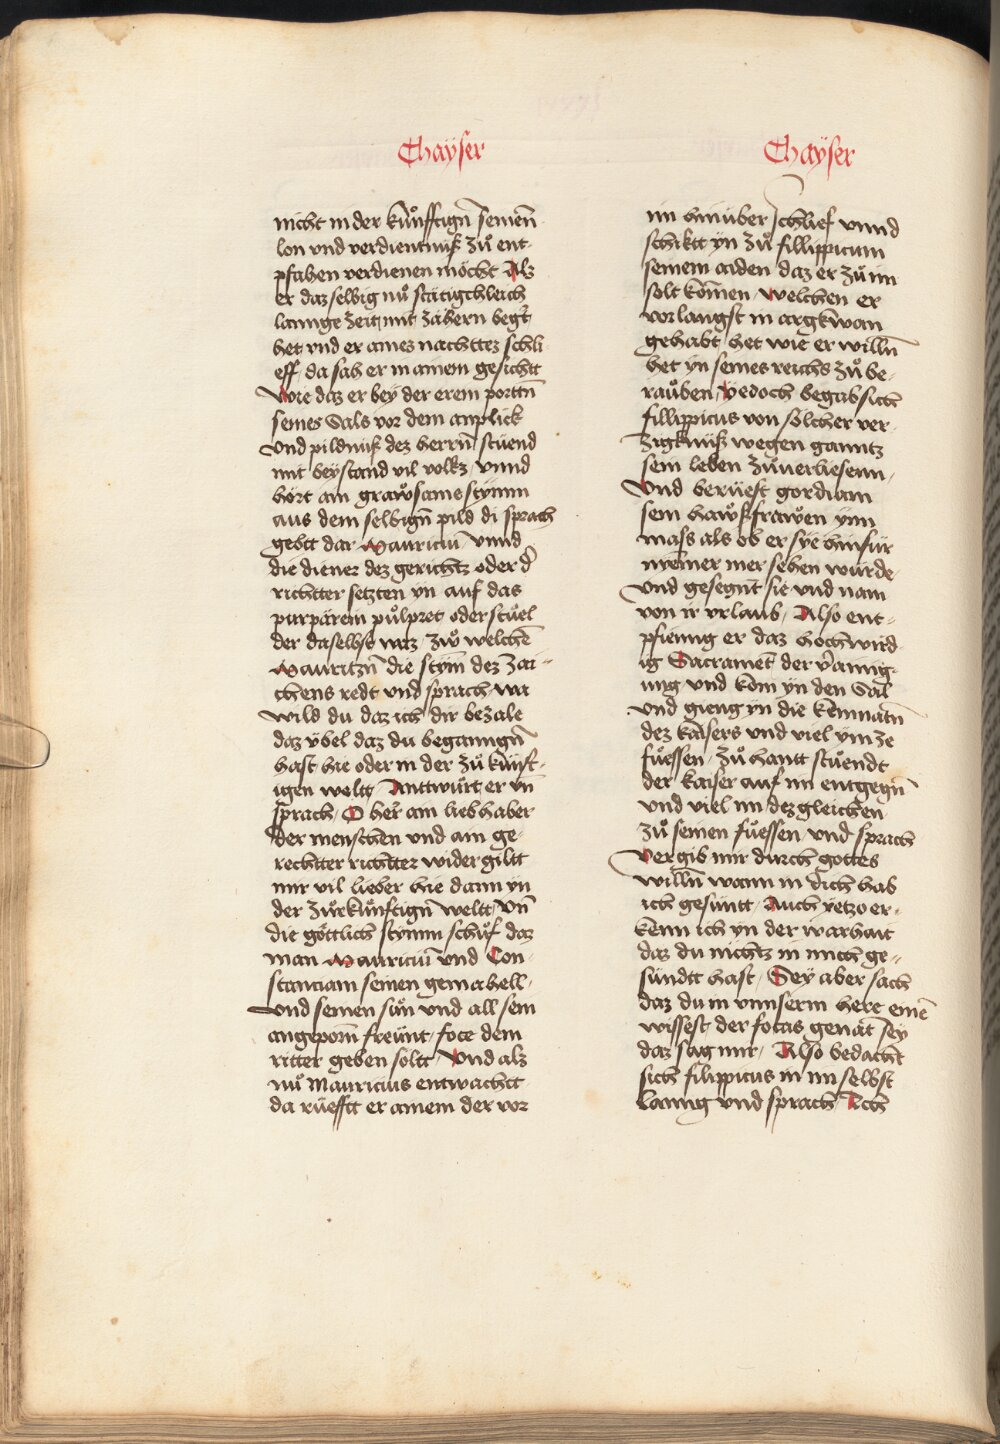 Chaÿser
nicht in der kůnfftign̄ seinen̄
lon vnd verdientnuß zů ent-
pfahen verdienen möcht Alz
er daz selbig nů stätigchleich
lannge zeit mit zähern begt̄
het vnd er ainez nachttez schli
eff, da sah er in ainem gesichtt
Wie daz er bey der erein porttn̄
seines Sals vor dem anplick
Vnd pildnuß dez herrn̄ stůend
mit beystand vil volkz, vnnd
hört ain grawsame stymm
aus dem selbign̄ pild di sprach
gebtt dar Mauriciū vnnd
die diener dez gerichtz oder d̄
richtter setzten yn auf das
purpärein půlpret oder stůel
der daselbst waz, Zw welchē
Mauritzn̄ die stym̄ dez zai-
chens redt vnd sprach, wa
wild du daz ich dir bezale
daz ybel daz du beganngn̄
hast hie oder in der zů künft-
igen weltt, Anttwürt er vn̄
sprach, O her̄ ain liebhaber
der menschen vnd ain ge-
rechtter richtter wider giltt
mir vil lieber hie dann yn
der zůrkůnftign̄ weltt, vn̄
die göttlich stymm schůf daz
man Mauriciū vnd Con-
stanciam seinen gemahell,
vnd seinen sůn vnd all sein
angeporn̄ freünt, foce dem
ritter geben soltt Vnd alz
nů Mauricius entwachtt
da rüefftt er ainem der vor
Chaÿser
im hinüber schlief vnnd
schiktt yn zů fillippicum
seinem aiden daz er zů im
solt kōmen, welchen er
vor langst in argkwan
gehabt het wie er willn̄
het yn seines reichs zů be-
rauben, yedoch begab sich
fillippicus von solcher ver-
zigknuß wegen ganntz
sein leben zůuerliesenn,
Vnd berüeft gordiam
sein hawsfrawen ynn
mass als ob er sye hinfür
nyemer mer sehen würde
vnd gesegnt̄ sie vnd nam
von ir vrlaub, Also ent-
pfienng er daz hochwird-
ig Sacramēt der v̄ainig-
ung vnd kom yn den Sal
vnd gieng yn die kēmnatn̄
dez kaisers vnd viel ym ze
füessen, Zů hantt stůendt
der kaiser auf im entgegn̄
vnd viel im dez gleichen
zů seinen füessen vnd sprach
Vergib mir durch gottes
willn̄ wann in dich hab
ich gesüntt, Auch yetzo er-
kenn ich yn der warhait
daz du nichtz in mich ge-
sündtt hast, Sey aber sach
daz du in vnnserm here einē
wissest der focas genāt sey
daz sag mir, Also bedacht
sich filippicus in im selbst
lanng vnd sprach, Ich